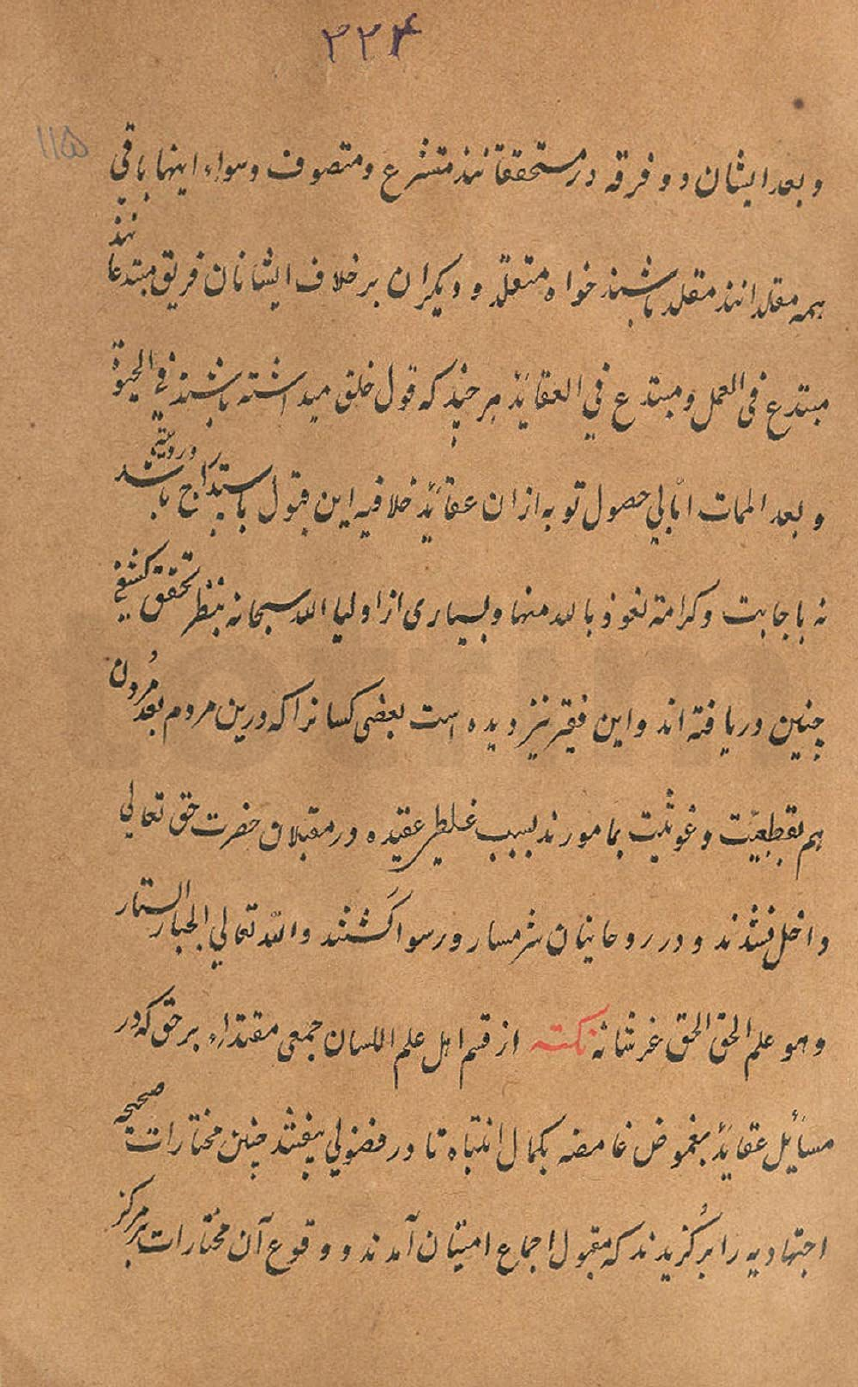 ۲۲۴
۱۱۵
و بعد ایشان دو فرقه در مستحققانند متشرع و متصوف و سواء اینها باقی
همه مقلدانند مقلد باشند خواه متعلّد و دیکران بر خلاف ایشانان فریق مبتدعانند
مبتدع فی العمل و مبتدع فی العقاید هر چند که قول خلق میداشته باشند فی الحیوة
و بعد الممات امّا بی حصول توبه ازان عقاید خلافیه این قبول باستدراج باشد
نه باجابت و کرامة نعوذ بالله منها و بسیاری از اولیا الله سبحانه بنظر تحقق کشفی
چنین دریافته اند و این فقیر نیز دیده است بعضی کسانرا که درین مردم بعد مُردن
هم بقطبیّت و غوثیّت مامورند بسبب غلطی عقیده در مقبلان حضرت حق تعالی
داخل نشدند و در روحانیان شرمسار و رسوا گشتند والله تعالی الجبار الستار
وهو علم الحق الحق عز شانه نکته از قسم اهل علم اللسان جمعی مقتداء بر حق که در
مسایل عقاید بغموض غامضه بکمال انتباه تا در فضولی نیفتند چنین مختارات صحیحه
اجتهادیه را برگزیدند که مقبول اجماع امتیان آمدند و وقوع آن مختارات بر مرکز